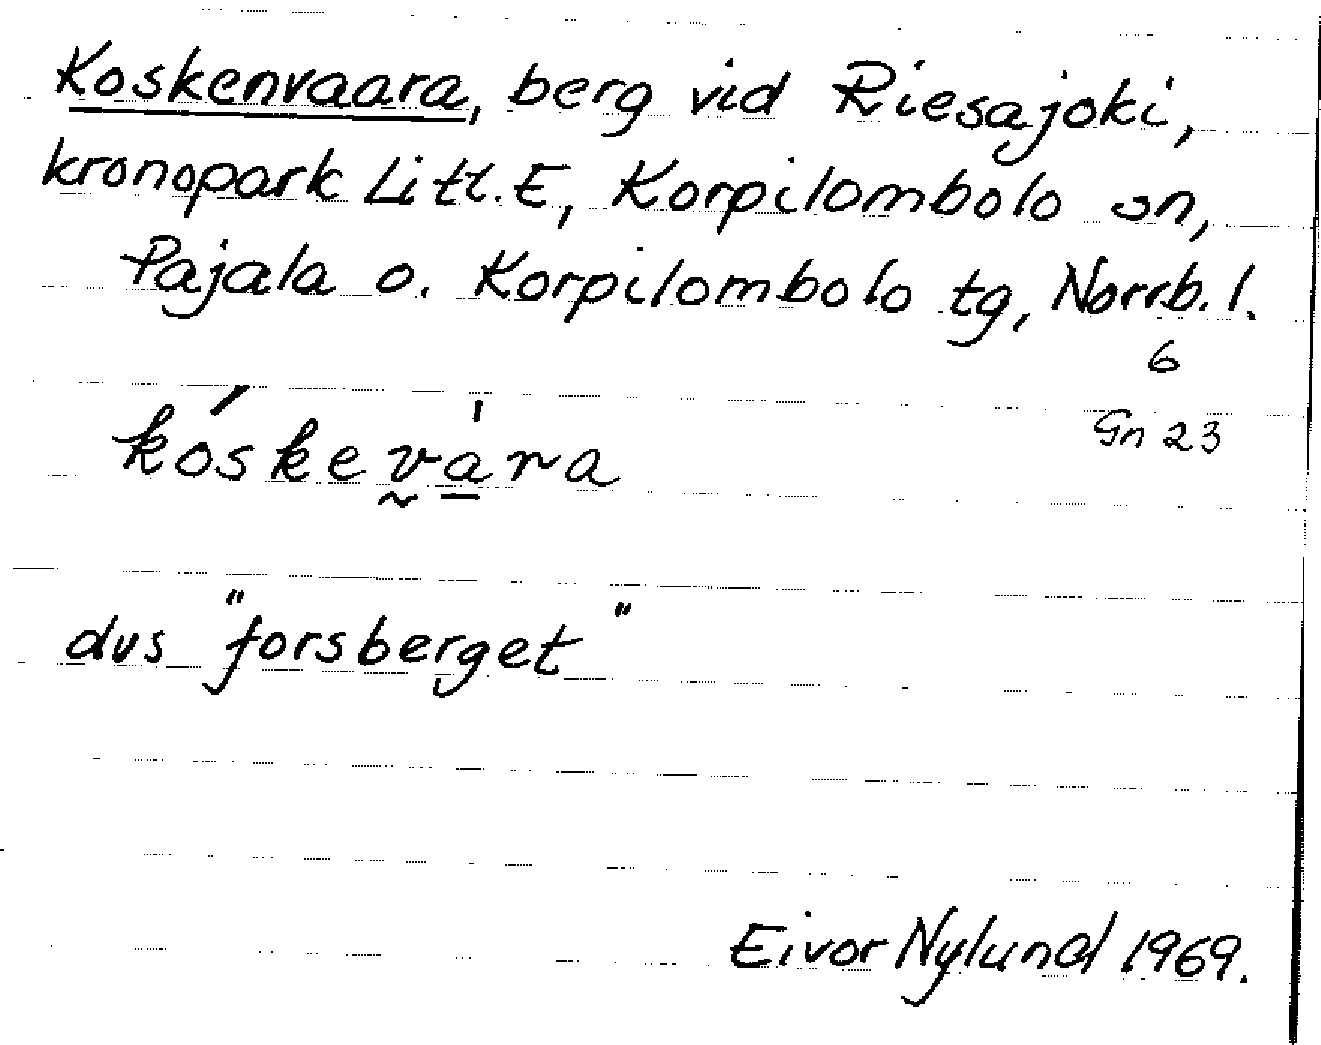 Koskenvaara, berg vid Riesajoki,
kronopark Litt. E, Korpilombolo sn,
Pajala o. Korpilombolo tg, Norrb. l.
6
Gn 23
kóskev̰a̱̍ra
dvs "forsberget"
Eivor Nylund 1969.